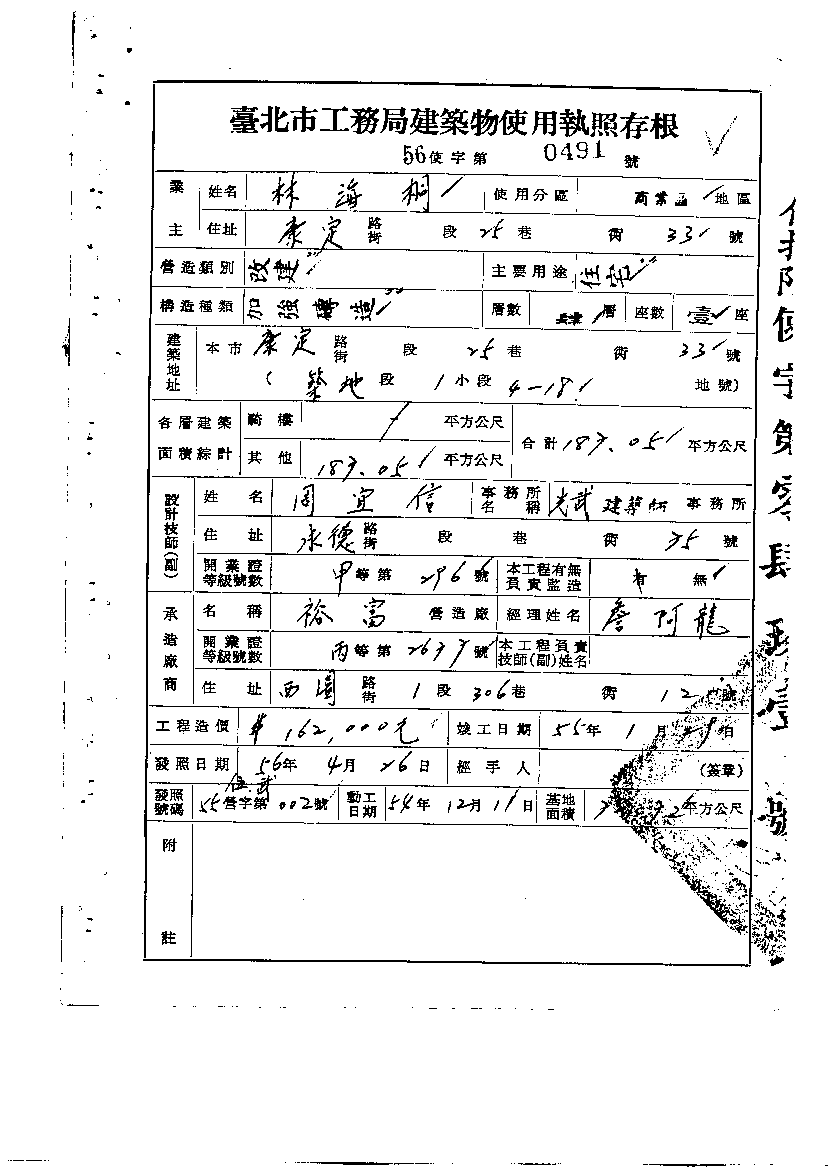 臺北市工務局建築物使用執照存根
56使字第 0491 號
業主 姓名 林海桐 使用分區 商業區 地區
住址 康定 路街 段 25巷 街 33 號
營造類別 改建 主要用途 住宅
構造種類 加強磚造 層數 層 座數 壹座
建築地址 本市 康定 路街 段 25巷 街 33 號
(築地段 1小段 4-18 地號)
各層建築面積綜計 騎樓 平方公尺 合計 187.05 平方公尺
其他 187.05 平方公尺
設計技師(副) 姓名 周宜信 事務所名稱 光武建築師事務所
住址 永德 路街 段 巷 街 35 號
開業證等級號數 甲等第 2966 號 本工程有無負責監造 有 無
承造廠商 名稱 裕富 營造廠 經理姓名 詹阿龍
開業證等級號數 丙等第 號 本工程負責技師(副)姓名
住址 西園 路街 1段 306巷 街 12 號
工程造價 162,000元 竣工日期 55年 1月 日
發照日期 56年 4月 26日 經手人 (簽章)
發照號碼 55營字第 002號 動工日期 54年 12月 11日 基地面積 平方公尺
附註